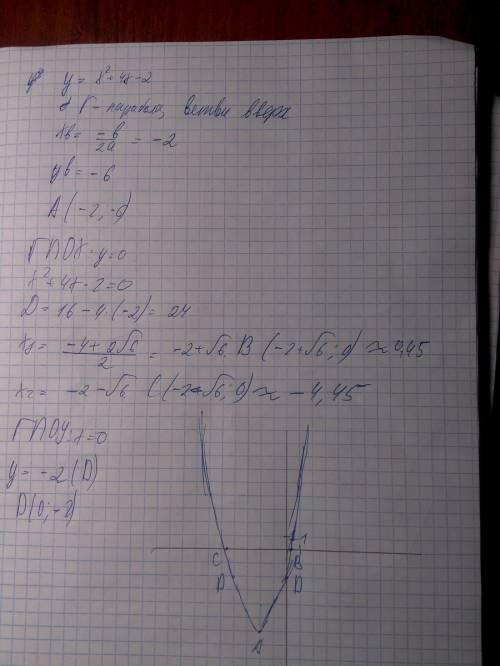 y = x²+4x-2
Г - парабола, ветви вверх
xв = -b/2a = -2
yв = -6
A (-2; -6)
Г∩OX: y=0
x²+4x-2=0
D = 16-4·(-2) = 24
x₁ = (-4+2√6)/2 = -2+√6. B (-2+√6; 0) ≈ 0,45
x₂ = -2-√6 C (-2-√6; 0) ≈ -4,45
Г∩OY: x=0
y = -2 (D)
D(0; -2)
1
C B
D D
A